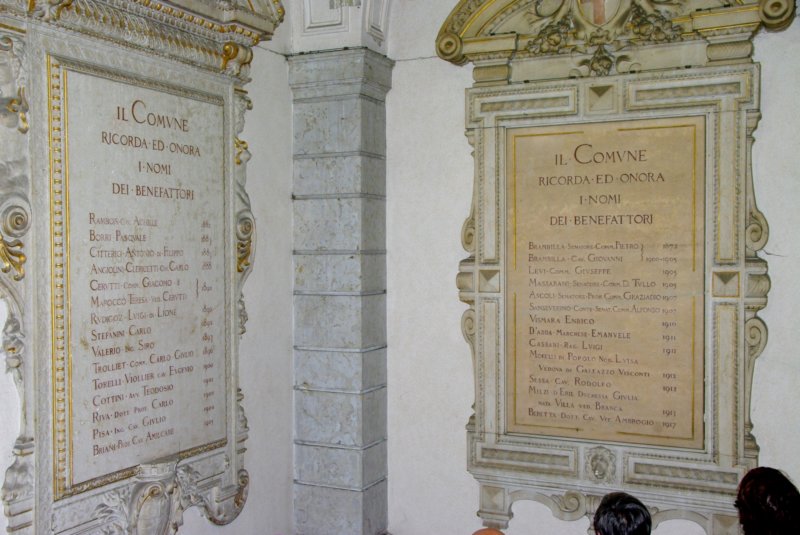 IL COMVNE
RICORDA·ED·ONORA
I·NOMI
DEI·BENEFATTORI
BORRI PASQVALE
CITTERICI·ANTONIO·DI·FILIPPO
ANGIOLINI·CLERICETTI·DI·CARLO 1888
CERVTTI·COMM·GIACOMO·E
MAROCCO·TERESA·VED·CERVTTI
LVIGI·DI·LIONE
STEFANINI CARLO
VALERIO·ING·SIRO
TROLLIET·COMM·CARLO·GIVLIO 1896
TORELLI·VIOLLIER·CAV·EVGENIO 1900
COTTINI·AVV·TEODOSIO
RIVA·DOTT·PROF·CARLO
PISA·ING·CAV·GIVLIO
CAV·AMILCARE
IL·COMVNE
RICORDA·ED·ONORA
I·NOMI
DEI·BENEFATTORI
BRAMBILLA·SENATORE·COMM·PIETRO 1872
BRAMBILLA·CAV·GIOVANNI 1900-1905
LEVI·COMM·GIVSEPPE 1905
MASSARANI·SENATORE·COMM·D·TVLLO 1905
ASCOLI·SENATORE·PROF·COMM·GRAZIADIO 1907
SANSEVERINO·CONTE·SENAT·COMM·ALFONSO 1907
VISMARA ENRICO 1910
D'ADDA·MARCHESE·EMANVELE 1911
CASSANI·RAG·LVIGI 1911
MORELLI DI POPOLO NOB. LVISA
VEDOVA DI GALEAZZO VISCONTI 1912
SESSA CAV. RODOLFO 1912
MELZI D'ERIL DVCHESSA GIVLIA
NATA VILLA VED. BRANCA 1913
BERETTA DOTT. CAV. VFF. AMBROGIO 1917